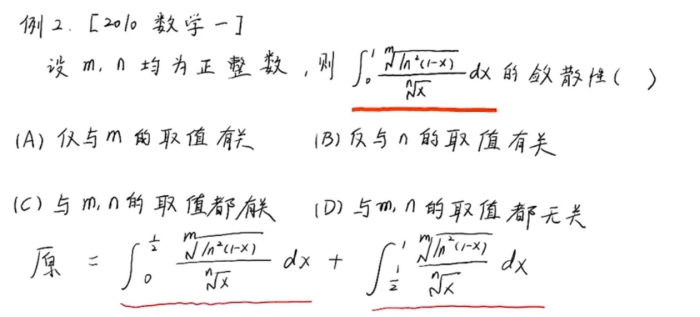 例2. [2010 数学一]
设 m, n 均为正整数, 则 ∫₀¹ ᵐ√(ln²(1-x)) / ⁿ√x dx 的敛散性( )
(A) 仅与 m 的取值有关 (B) 仅与 n 的取值有关
(C) 与 m, n 的取值都有关 (D) 与 m, n 的取值都无关
原 = ∫₀^(1/2) ᵐ√(ln²(1-x)) / ⁿ√x dx + ∫_(1/2)^1 ᵐ√(ln²(1-x)) / ⁿ√x dx